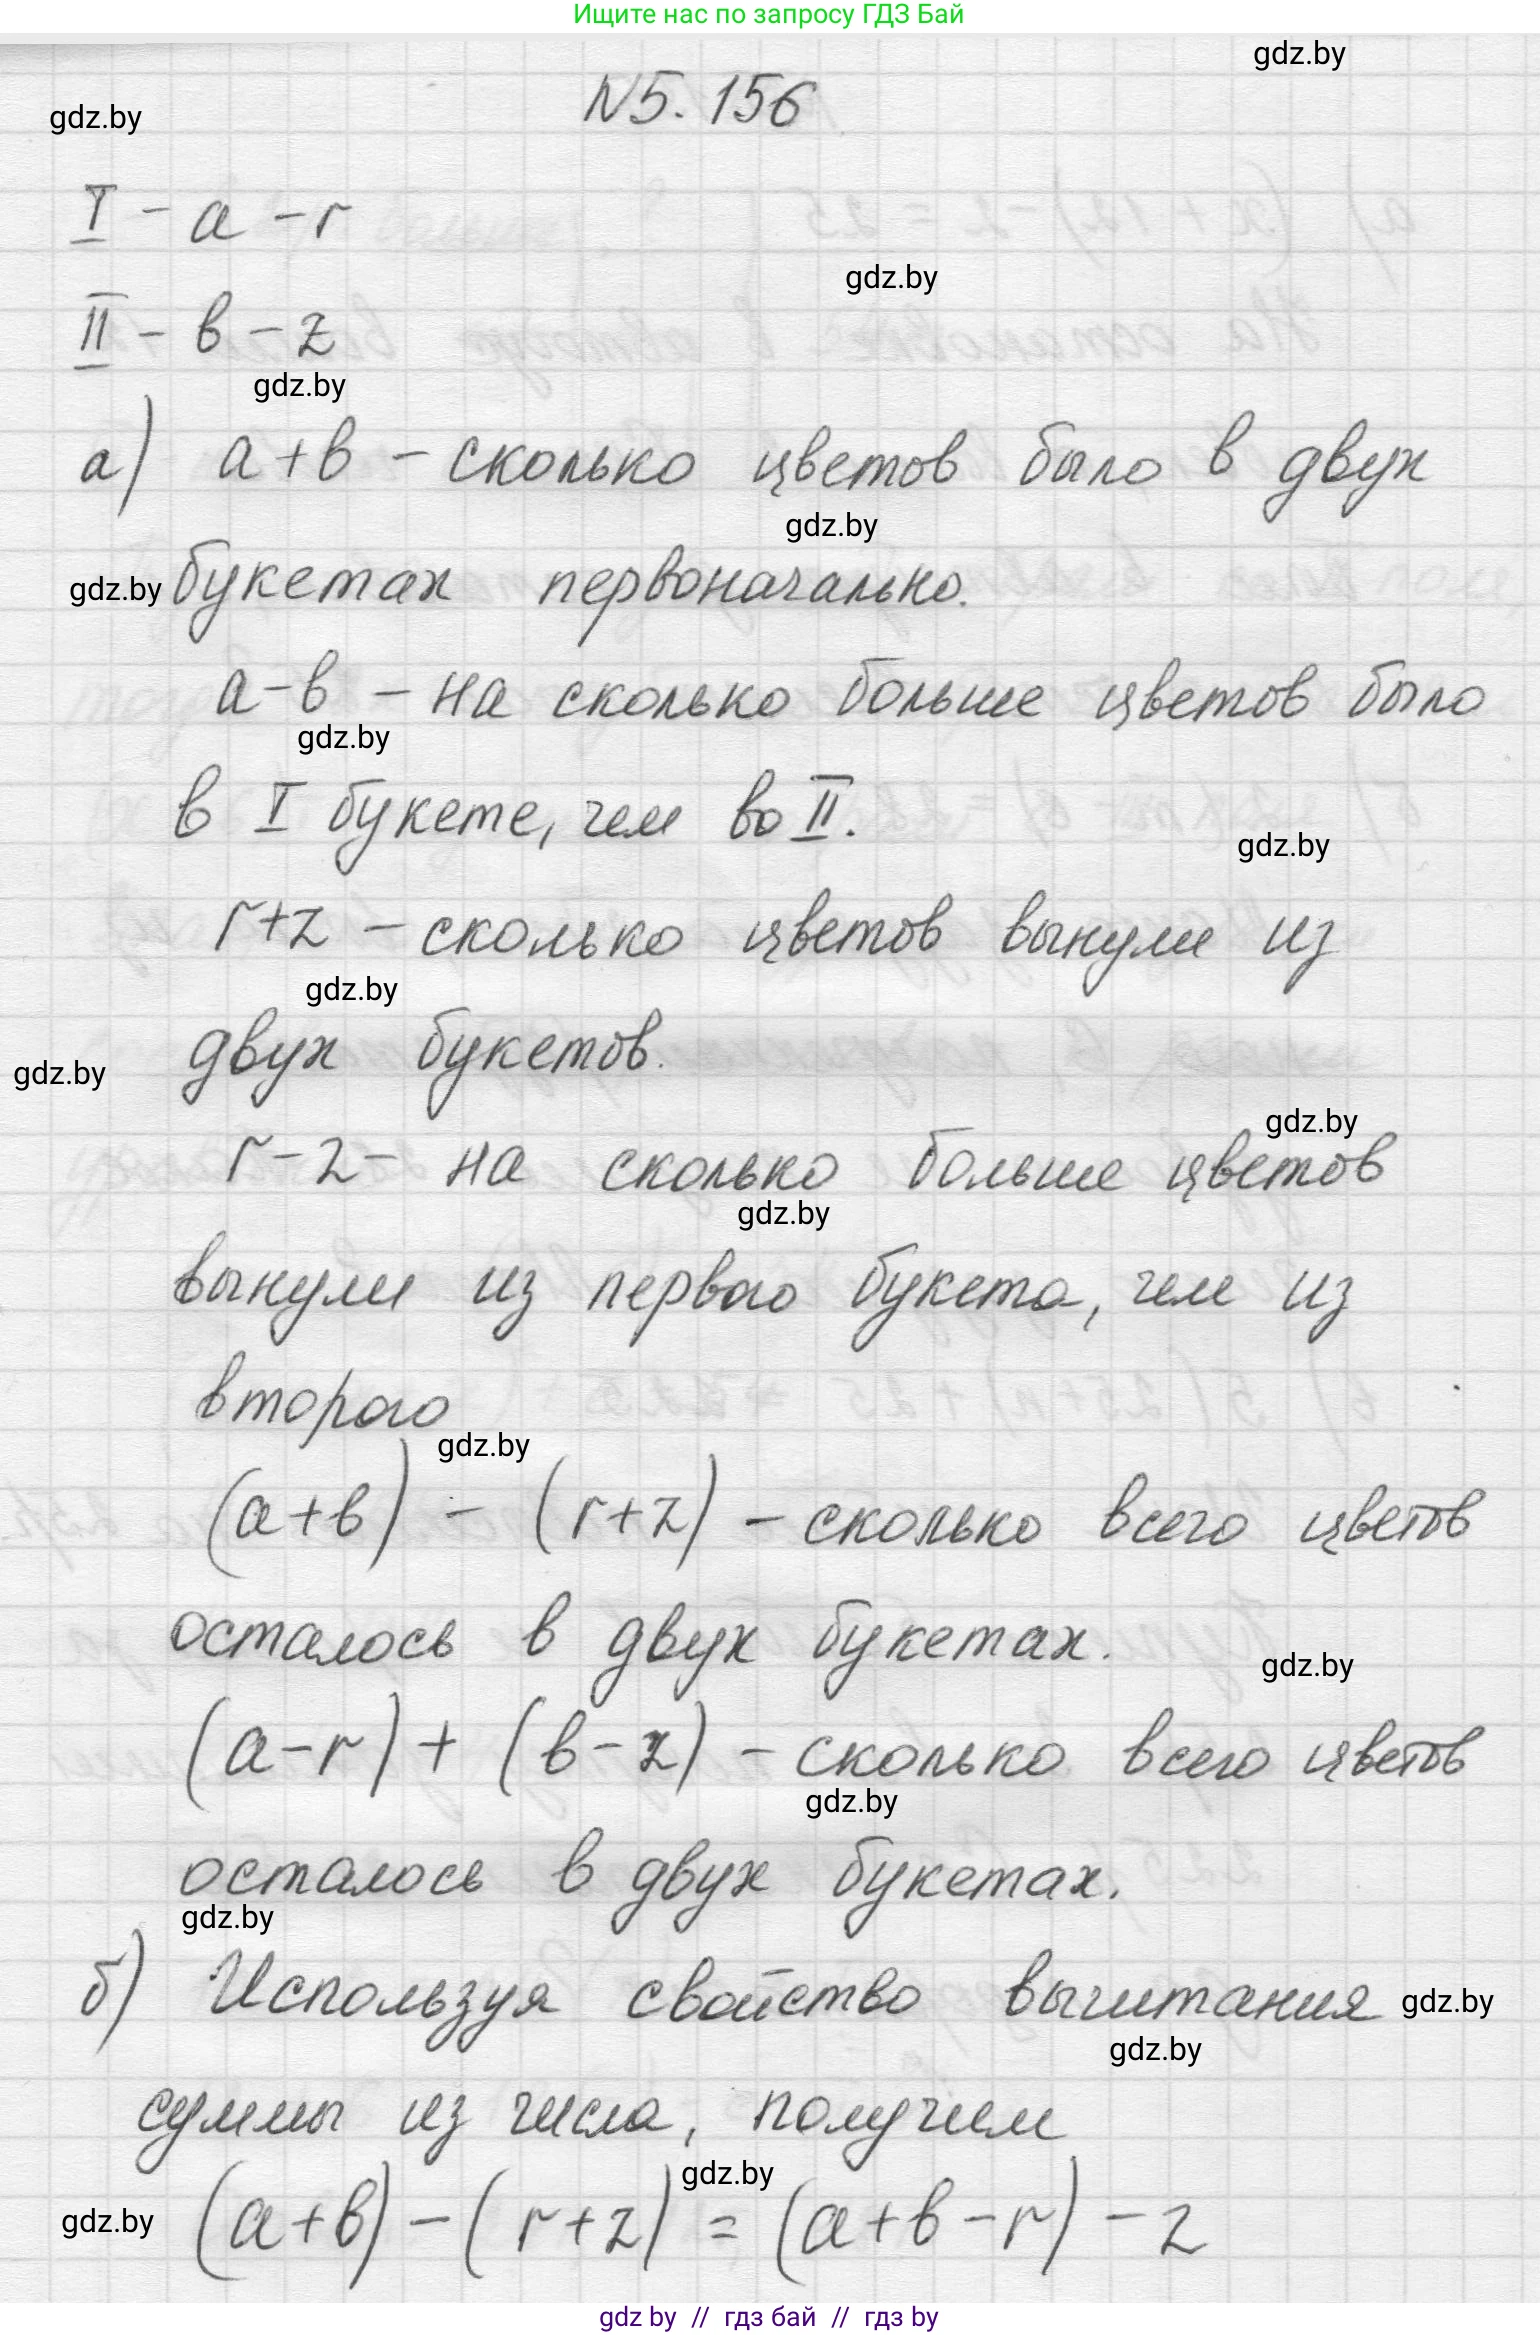 Ищите нас по запросу ГДЗ Бай
gdz.by
gdz.by
N5.156
I - a - r
gdz.by
II - в - z
gdz.by
а) a+в - сколько цветов было в двух
gdz.by
gdz.by
букетах первоначально.
a-в - на сколько больше цветов было
gdz.by
в I букете, чем во II.
gdz.by
r+z - сколько цветов вынули из
gdz.by
двух букетов.
gdz.by
gdz.by
r-z- на сколько больше цветов
gdz.by
вынули из первого букета, чем из
второго
gdz.by
(a+в) - (r+z) - сколько всего цветов
осталось в двух букетах.
gdz.by
(a-r)+(в-z) - сколько всего цветов
gdz.by
осталось в двух букетах.
gdz.by
б) Используя свойство вычитания
gdz.by
gdz.by
суммы из числа, получим
gdz.by
gdz.by
(a+в)-(r+z) = (a+в-r)-z
gdz by // гдз бай // гдз by